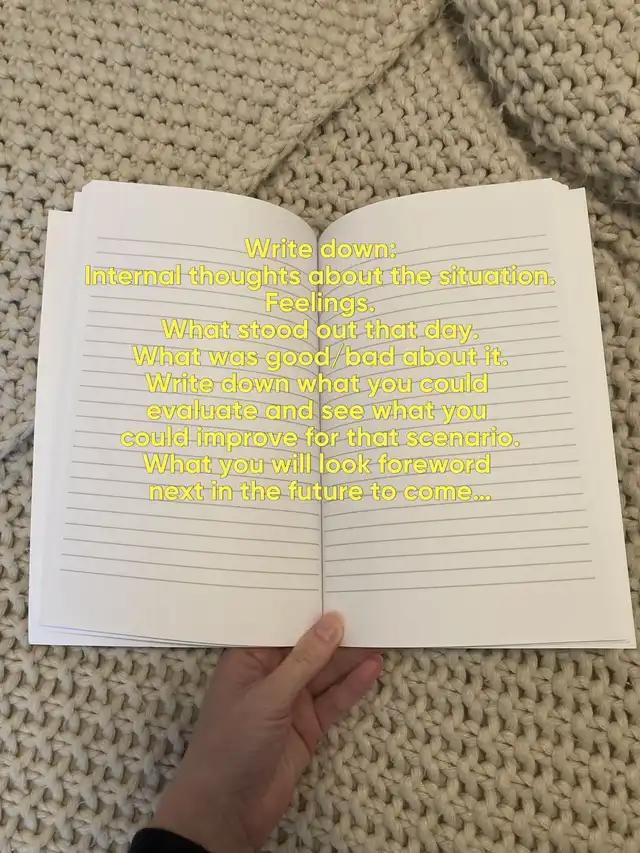 Write down:
Internal thoughts about the situation.
Feelings.
What stood out that day.
What was good/bad about it.
Write down what you could
evaluate and see what you
could improve for that scenario.
What you will look foreword
next in the future to come...